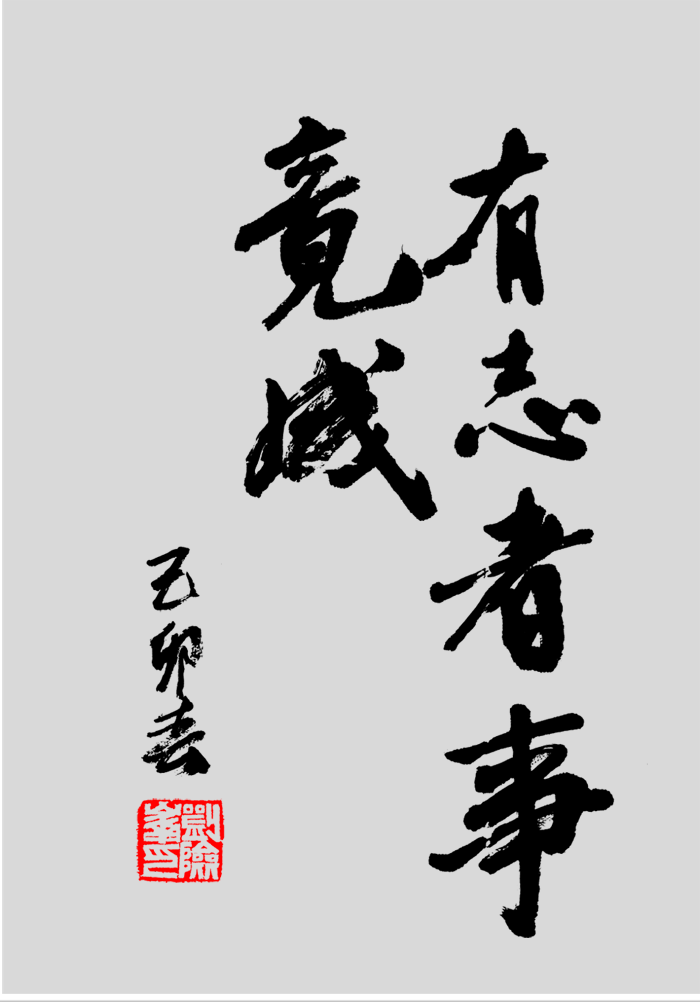 有志者事
竟成
己卯春
劉險峯印